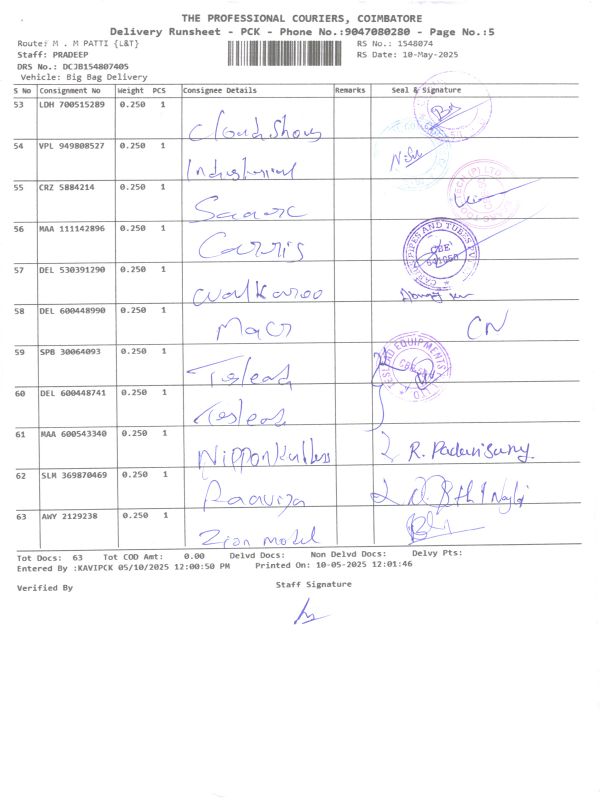 THE PROFESSIONAL COURIERS, COIMBATORE
Delivery Runsheet - PCK - Phone No.:9047080280 - Page No.:5
Route: M . M PATTI {L&T} RS No.: 1548074
Staff: PRADEEP RS Date: 10-May-2025
DRS No.: DCJB154807405
Vehicle: Big Bag Delivery
S No Consignment No Weight PCS Consignee Details Remarks Seal & Signature
53 LDH 700515289 0.250 1
54 VPL 949808527 0.250 1 Industrial
55 CRZ 5884214 0.250 1
56 MAA 111142896 0.250 1 Carris
PIPES AND TUBES PVT
CBE
57 DEL 530391290 0.250 1 walkaroo
58 DEL 600448990 0.250 1 Macr CN
59 SPB 30064093 0.250 1 Teslead
TESLEAD EQUIPMENTS
60 DEL 600448741 0.250 1 Teslead
61 MAA 600543340 0.250 1 Nippon R.
62 SLM 369870469 0.250 1
63 AWY 2129238 0.250 1 Zion model
Tot Docs: 63 Tot COD Amt: 0.00 Delvd Docs: Non Delvd Docs: Delvy Pts:
Entered By :KAVIPCK 05/10/2025 12:00:50 PM Printed On: 10-05-2025 12:01:46
Verified By Staff Signature